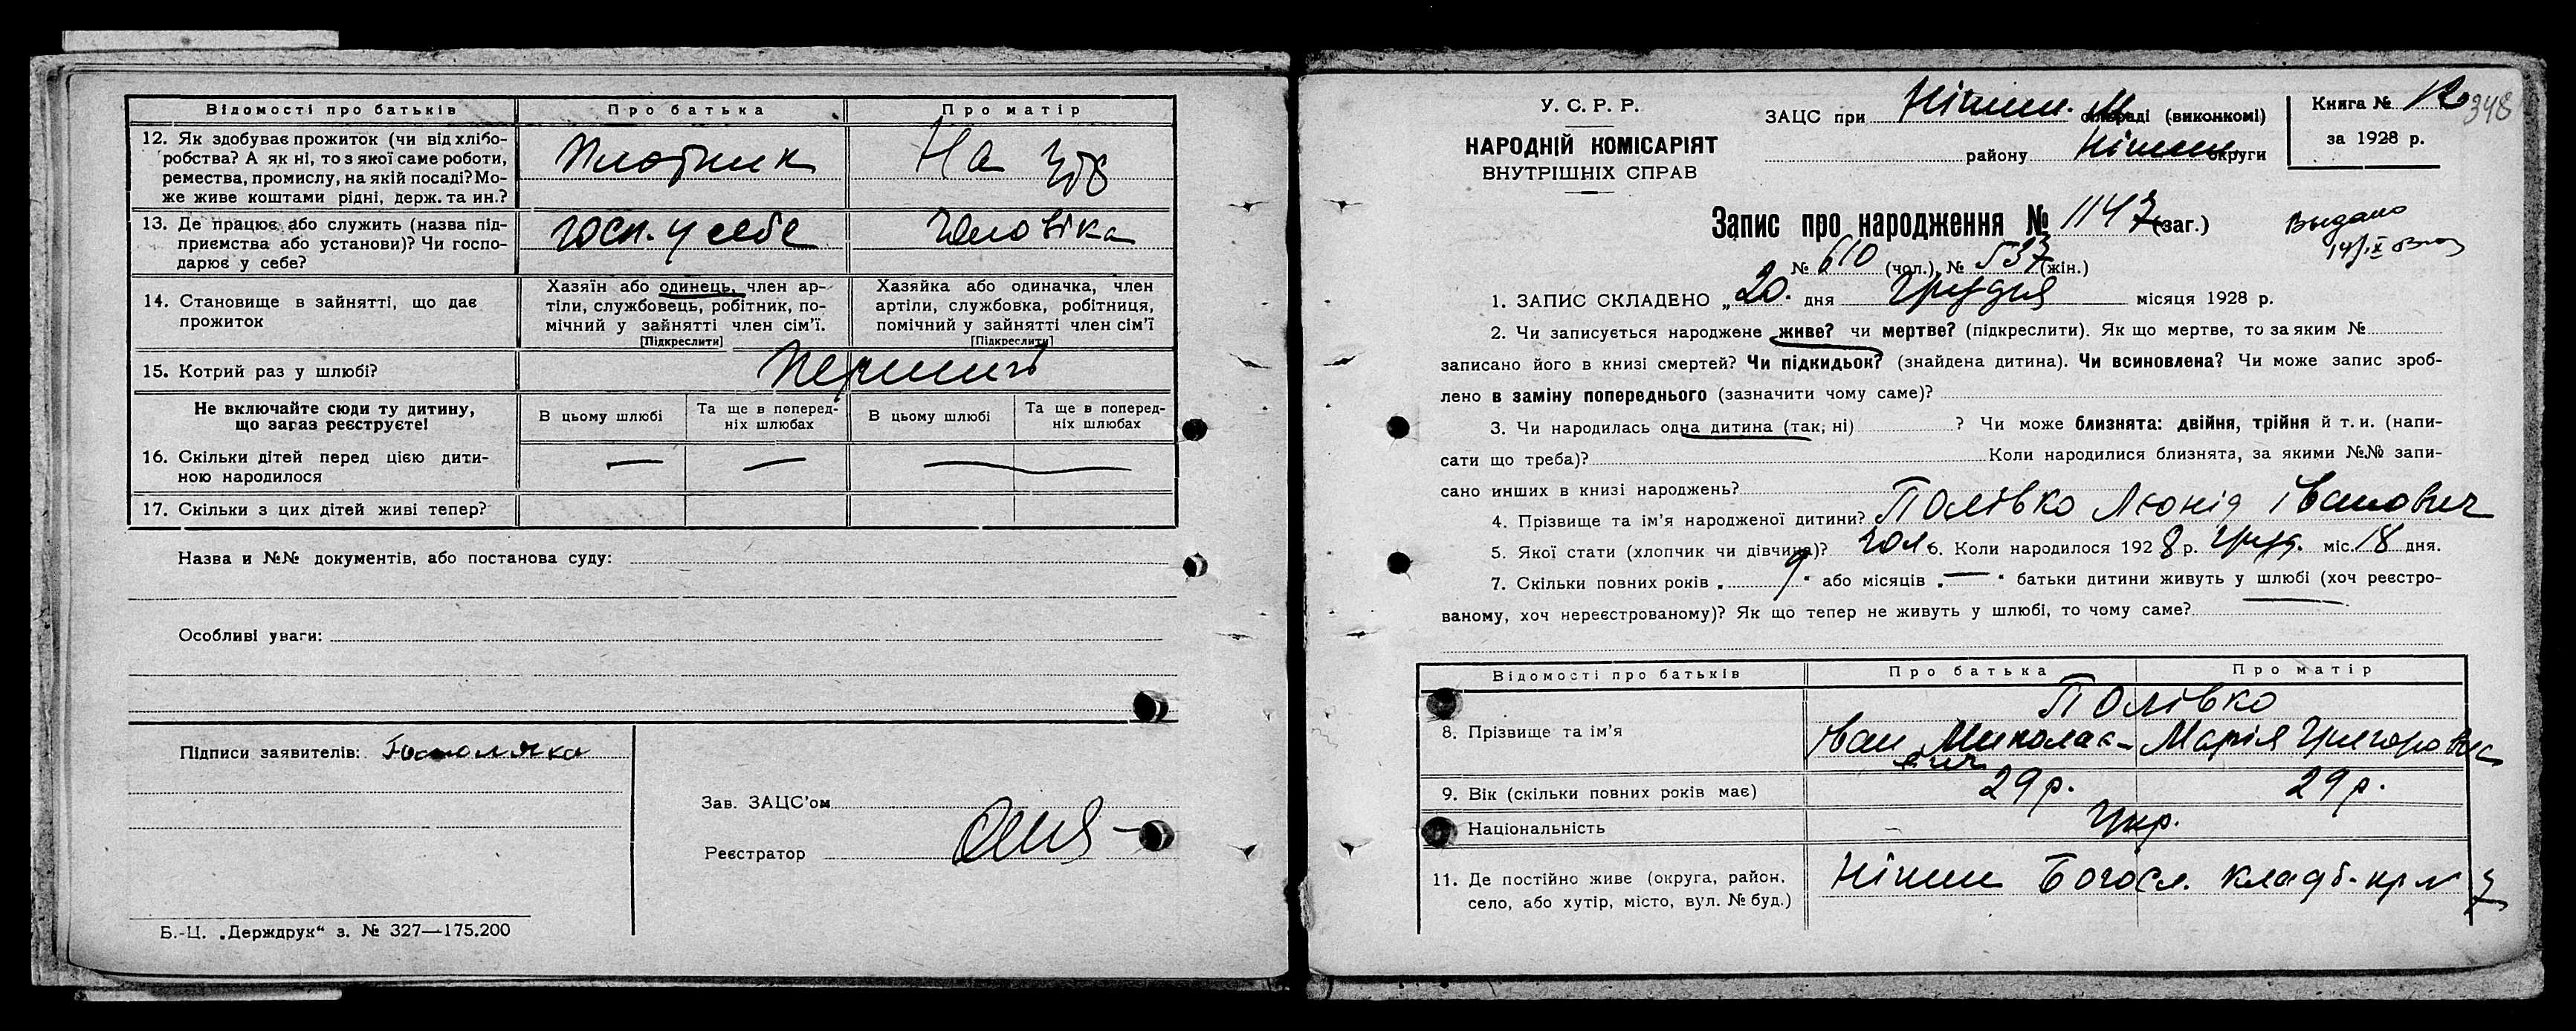 Відомості про батьків Про батька Про матір
12. Як здобуває прожиток (чи від хлібо-
робства? А як ні, то з якої саме роботи,
ремества, промислу, на якій посаді? Мо-
же живе коштами рідні, держ. та ин.?
Плотник На утр
13. Де працює або служить (назва під-
приємства або установи)? Чи госпо-
дарює у себе?
госп. у себе чоловіка
14. Становище в зайнятті, що дає
прожиток
Хазяїн або одинець, член ар-
тіли, службовець, робітник, по-
мічний у зайнятті член сім'ї.
[Підкреслити]
Хазяйка або одиначка, член
артіли, службовка, робітниця,
помічний у зайнятті член сім'ї
[Підкреслити]
15. Котрий раз у шлюбі?
Не включайте сюди ту дитину,
що зараз реєструєте!
В цьому шлюбі
Та ще в поперед-
ніх шлюбах
В цьому шлюбі
Та ще в поперед-
ніх шлюбах
16. Скільки дітей перед цією дити-
ною народилося
— — —
17. Скільки з цих дітей живі тепер?
Назва и №№ документів, або постанова суду:
Особливі уваги:
Підписи заявителів:
Зав. ЗАЦС'ом
Реєстратор
Б.-Ц. „Держдрук“ з. № 327—175.200
У. С. Р. Р.
НАРОДНІЙ КОМІСАРІЯТ
ВНУТРІШНІХ СПРАВ
ЗАЦС при Ніжин. М сільраді (виконкомі)
району Ніжин округи
Книга № 12
за 1928 р.
348
Запис про народження № 1147 (заг.)
№ 610 (чол.), № 537 (жін.)
Выдано
14/IX
1. ЗАПИС СКЛАДЕНО „20. дня Грудня місяця 1928 р.
2. Чи записується народжене живе? чи мертве? (підкреслити). Як що мертве, то за яким №
записано його в книзі смертей? Чи підкидьок? (знайдена дитина). Чи всиновлена? Чи може запис зроб-
лено в заміну попереднього (зазначити чому саме)?
3. Чи народилась одна дитина (так, ні) ? Чи може близнята: двійня, трійня й т. и. (напи-
сати що треба)? Коли народилися близнята, за якими №№ запи-
сано инших в книзі народжень?
4. Прізвище та ім'я народженої дитини? Полівко Леонід Іванович
5. Якої стати (хлопчик чи дівчина)? чол 6. Коли народилося 1928 р. груд. міс. 18 дня.
7. Скільки повних років „ 9 “ або місяців „ — “ батьки дитини живуть у шлюбі (хоч реєстро-
ваному, хоч нереєстрованому)? Як що тепер не живуть у шлюбі, то чому саме?
Відомості про батьків Про батька Про матір
Полівко
8. Прізвище та ім'я Іван Миколає- Марія Григоровна
вич
9. Вік (скільки повних років має) 29 р. 29 р.
Національність Укр.
11. Де постійно живе (округа, район,
село, або хутір, місто, вул. № буд.)
Ніжин Богосл. кладб. пр № 7